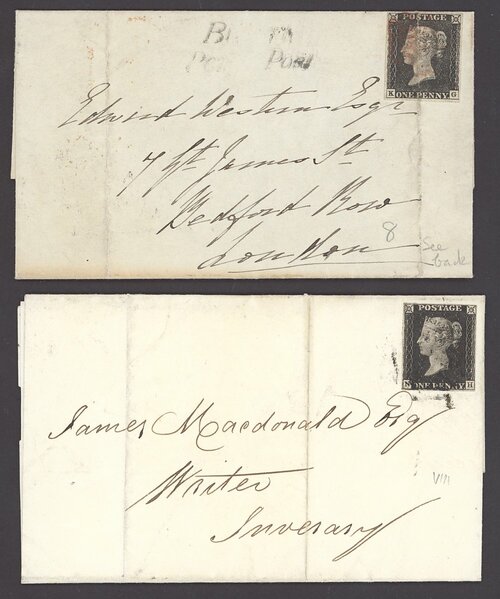 Penny Post
POSTAGE
K G
ONE PENNY
Edward Western Esqr
7 Gt James St
Bedford Row
London
8
See back
POSTAGE
N H
ONE PENNY
James Macdonald Esq
Writer
Inverary
VIII